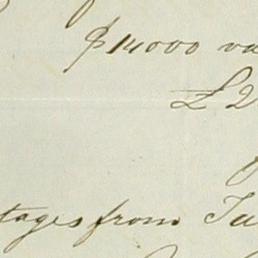 $14000 va
£2
tages from Tu